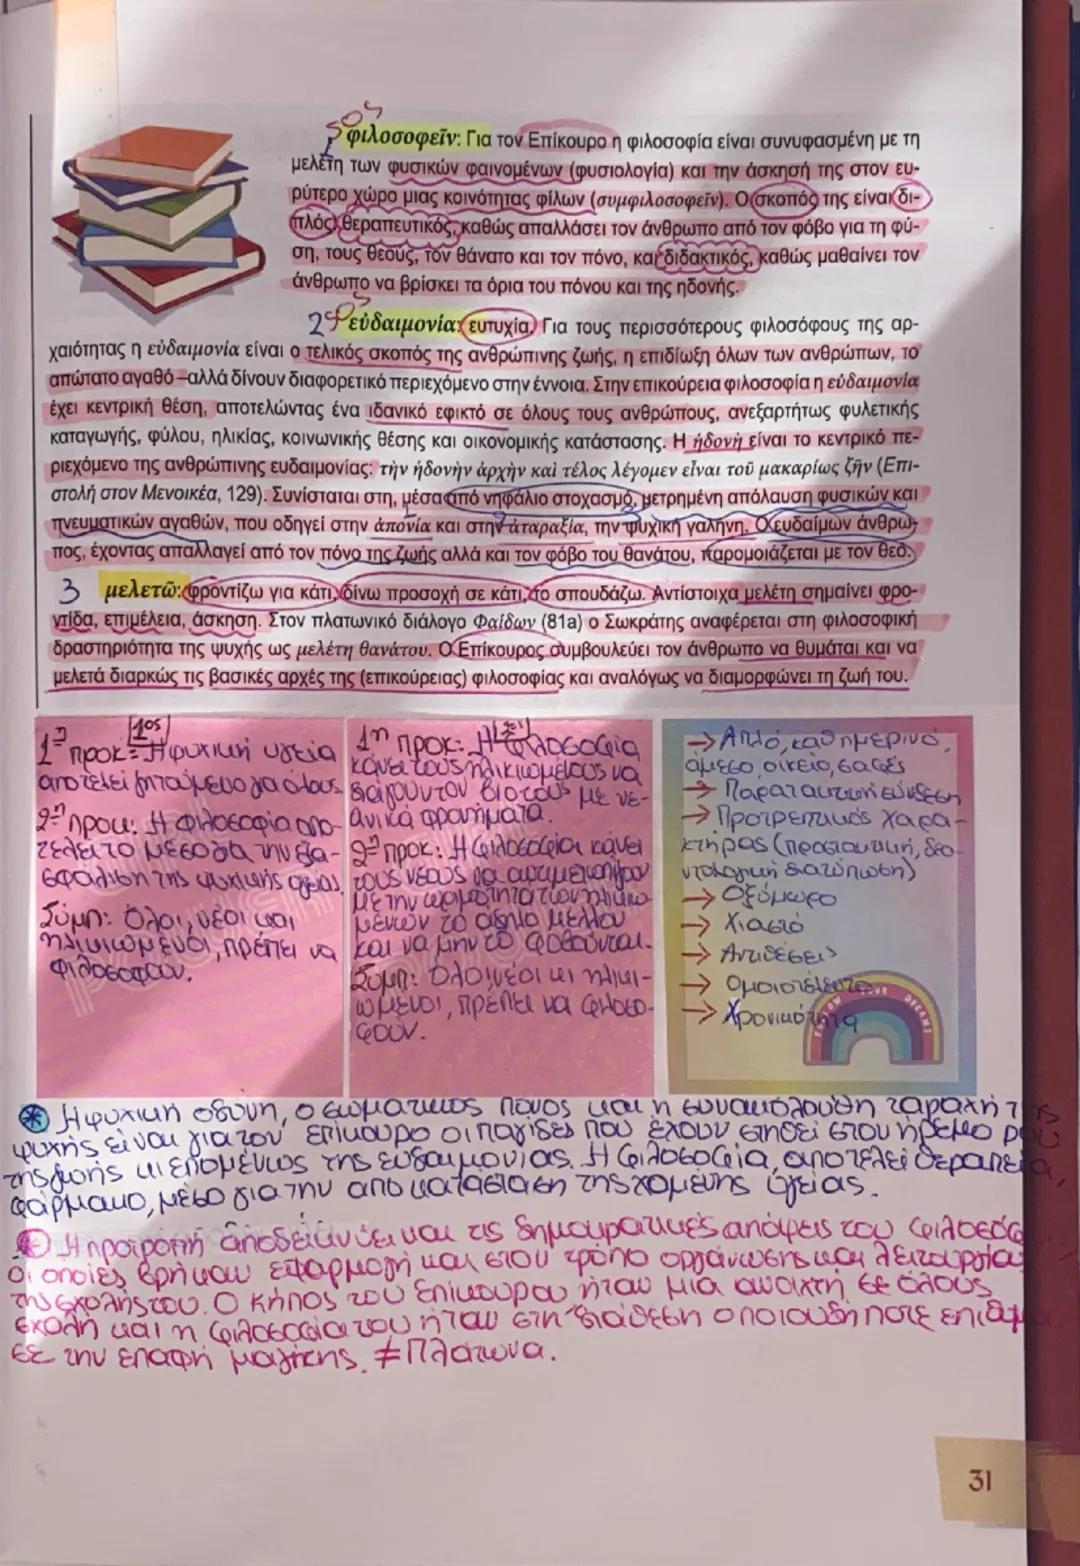 φιλοσοφεῖν: Για τον Επίκουρο η φιλοσοφία είναι συνυφασμένη με τη
μελέτη των φυσικών φαινομένων (φυσιολογία) και την άσκησή της στον ευ-
ρύτερο χώρο μιας κοινότητας φίλων (συμφιλοσοφεῖν). Ο σκοπός της είναι δι-
πλός, θεραπευτικός, καθώς απαλλάσει τον άνθρωπο από τον φόβο για τη φύ-
ση, τους θεούς, τον θάνατο και τον πόνο, και διδακτικός, καθώς μαθαίνει τον
άνθρωπο να βρίσκει τα όρια του πόνου και της ηδονής.
2 εὐδαιμονία: ευτυχία. Για τους περισσότερους φιλοσόφους της αρ-
χαιότητας η εὐδαιμονία είναι ο τελικός σκοπός της ανθρώπινης ζωής, η επιδίωξη όλων των ανθρώπων, το
απώτατο αγαθό –αλλά δίνουν διαφορετικό περιεχόμενο στην έννοια. Στην επικούρεια φιλοσοφία η εὐδαιμονία
έχει κεντρική θέση, αποτελώντας ένα ιδανικό εφικτό σε όλους τους ανθρώπους, ανεξαρτήτως φυλετικής
καταγωγής, φύλου, ηλικίας, κοινωνικής θέσης και οικονομικής κατάστασης. Η ἡδονὴ είναι το κεντρικό πε-
ριεχόμενο της ανθρώπινης ευδαιμονίας: τὴν ἡδονὴν ἀρχὴν καὶ τέλος λέγομεν εἶναι τοῦ μακαρίως ζῆν (Επι-
στολή στον Μενοικέα, 129). Συνίσταται στη, μέσα από νηφάλιο στοχασμό, μετρημένη απόλαυση φυσικών και
πνευματικών αγαθών, που οδηγεί στην ἀπονία και στην ἀταραξία, την ψυχική γαλήνη. Ο ευδαίμων άνθρω-
πος, έχοντας απαλλαγεί από τον πόνο της ζωής αλλά και τον φόβο του θανάτου, παρομοιάζεται με τον θεό.
3 μελετῶ: φροντίζω για κάτι, δίνω προσοχή σε κάτι, το σπουδάζω. Αντίστοιχα μελέτη σημαίνει φρο-
ντίδα, επιμέλεια, άσκηση. Στον πλατωνικό διάλογο Φαίδων (81a) ο Σωκράτης αναφέρεται στη φιλοσοφική
δραστηριότητα της ψυχής ως μελέτη θανάτου. Ο Επίκουρος συμβουλεύει τον άνθρωπο να θυμάται και να
μελετά διαρκώς τις βασικές αρχές της (επικούρειας) φιλοσοφίας και αναλόγως να διαμορφώνει τη ζωή του.
1ος
1η προκ: Η ψυχική υγεία
αποτελεί ζητούμενο για όλους.
2η προκ: Η φιλοσοφία απο-
τελεί το μέσο για την εξα-
σφάλιση της ψυχικής υγείας.
Συμπ: Όλοι, νέοι και
ηλικιωμένοι, πρέπει να
φιλοσοφούν.
1η προκ: Η φιλοσοφία
κάνει τους ηλικιωμένους να
διάγουν τον βίο τους με νε-
ανικά φρονήματα.
2η προκ: Η φιλοσοφία κάνει
τους νέους να αντιμετωπίζουν
με την ωριμότητα των ηλικιω-
μένων το άδηλο μέλλον
και να μην το φοβούνται.
Συμπ: Όλοι, νέοι κι ηλικι-
ωμένοι, πρέπει να φιλοσο-
φούν.
→ Απλό, καθημερινό,
άμεσο, οικείο, σαφές
→ Παρατακτική σύνδεση
→ Προτρεπτικός χαρα-
κτήρας (προστακτική, δεο-
ντολογική διατύπωση)
→ Οξύμωρο
→ Χιαστό
→ Αντιθέσεις
→ Ομοιοτέλευτο
→ Χρονικότητα
FOLLOW YOUR DREAMS
* Η ψυχική οδύνη, ο σωματικός πόνος και η συνακόλουθη ταραχή της
ψυχής είναι για τον Επίκουρο οι παγίδες που έχουν στηθεί στον ήρεμο ρου
της ζωής κι επομένως της ευδαιμονίας. Η φιλοσοφία, αποτελεί θεραπεία,
φάρμακο, μέσο για την αποκατάσταση της χαμένης υγείας.
* Η προτροπή αποδεικνύει και τις δημοκρατικές απόψεις του φιλοσόφ
οι οποίες βρήκαν εφαρμογή και στον τρόπο οργάνωσης και λειτουργίας
της σχολής του. Ο Κήπος του Επίκουρου ήταν μια ανοιχτή σε όλους
σχολή και η φιλοσοφία του ήταν στη διάθεση οποιουδήποτε επιθυμ
σε την επαφή μαζί της. ≠ Πλάτωνα.
31